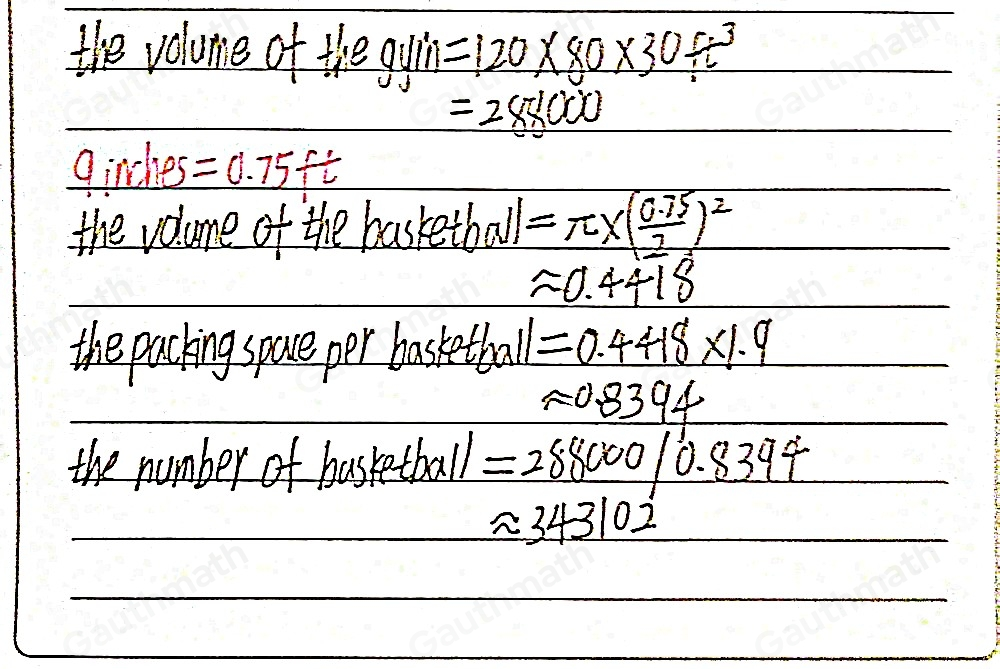 the volume of the gym=120×80×30ft³
=288000
9 inches=0.75ft
the volume of the basketball=π×(0.75/2)²
≈0.4418
the packing space per basketball=0.4418×1.9
≈0.8394
the number of basketball=288000/0.8394
≈343102
Gauthmath